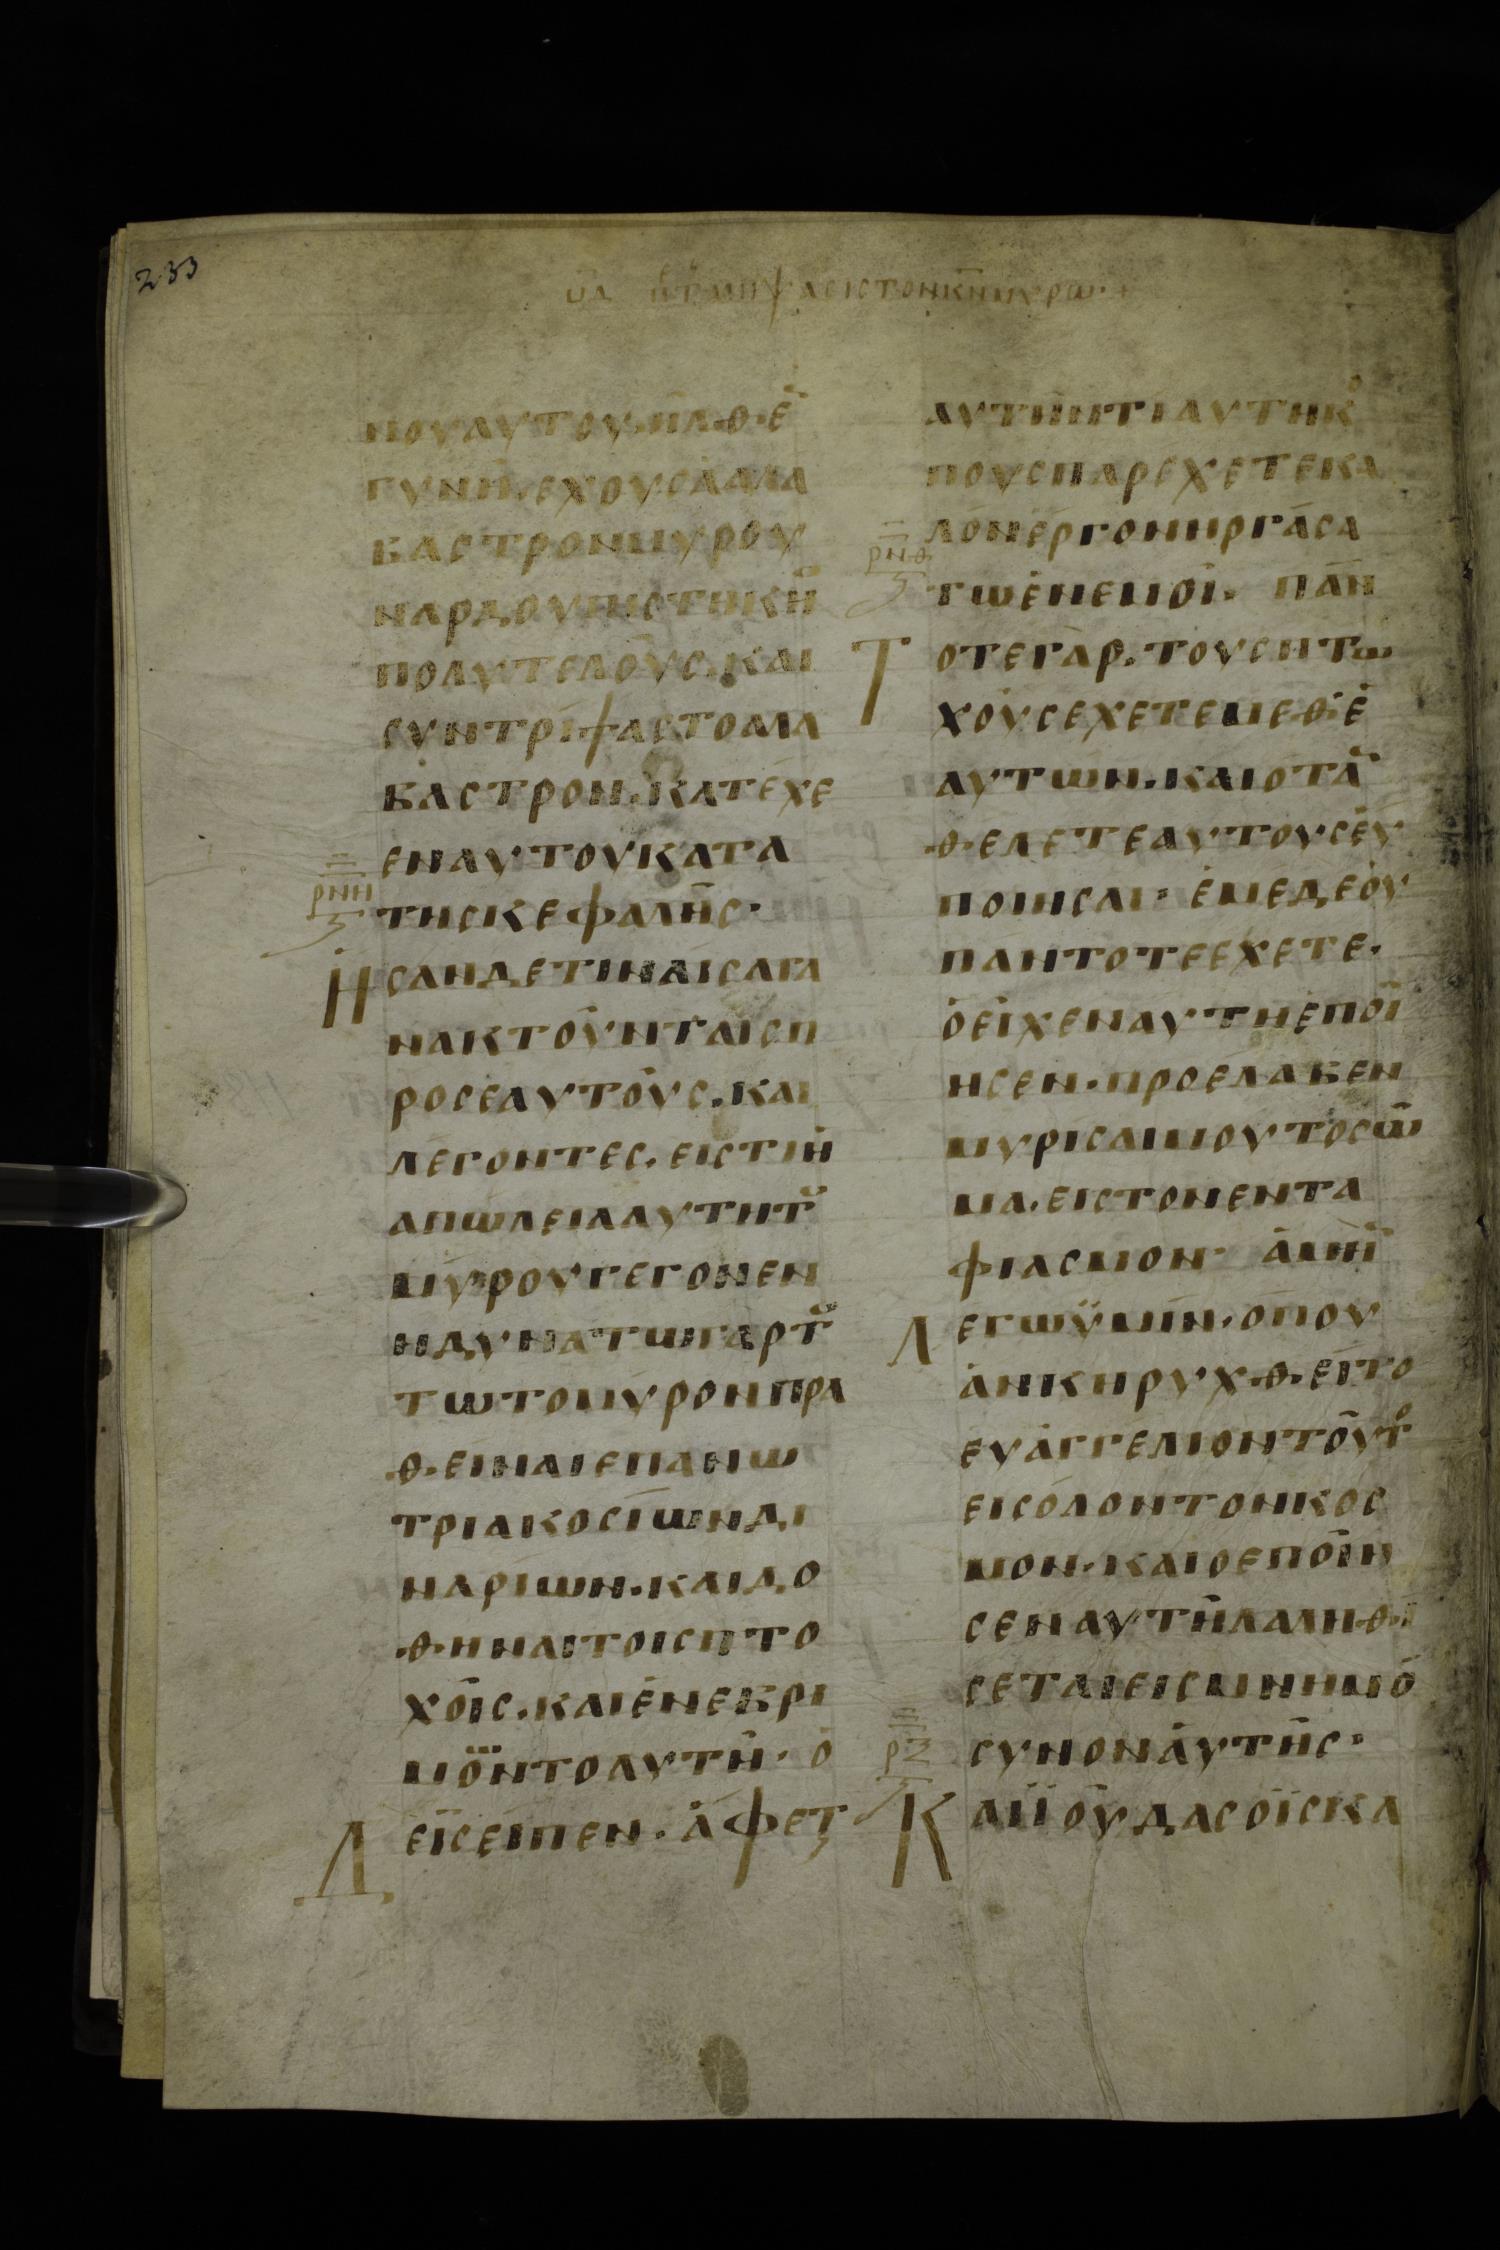 233
ΠΟΥΑΥΤΟΥ·ΗΛΘΕ
ΓΥΝΗ·ΕΧΟΥΣΑΑΛΑ
ΒΑΣΤΡΟΝΜΥΡΟΥ
ΝΑΡΔΟΥΠΙΣΤΗΚΗ
ΠΟΛΥΤΕΛΟΥΣ·ΚΑΙ
ΣΥΝΤΡΙΨΑΣΤΟΑΛΑ
ΒΑΣΤΡΟΝ·ΚΑΤΕΧΕ
ΕΝΑΥΤΟΥΚΑΤΑ
ΡΝΗ
ΤΗΣΚΕΦΑΛΗΣ·
ΗΣΑΝΔΕΤΙΝΑΙΣΑΓΑ
ΝΑΚΤΟΥΝΤΑΙΣΠ
ΡΟΣΕΑΥΤΟΥΣ·ΚΑΙ
ΛΕΓΟΝΤΕΣ·ΕΙΣΤΙΗ
ΑΠΩΛΕΙΑΑΥΤΗΤȢ
ΜΥΡΟΥΓΕΓΟΝΕΝ
ΗΔΥΝΑΤΩΓΑΡΤȢ
ΤΩΤΟΜΥΡΟΝΠΡΑ
ΘΕΙΝΑΙΕΠΑΝΩ
ΤΡΙΑΚΟΣΙΩΝΔΙ
ΝΑΡΙΩΝ·ΚΑΙΔΟ
ΘΗΝΑΙΤΟΙΣΠΤΟ
ΧΟΙΣ·ΚΑΙΕΝΕΒΡΙ
ΜΟΝΤΟΑΥΤΗ·Ο
ΔΕΙΣΕΙΠΕΝ·ΑΦΕΤ
ΑΥΤΗΝΤΙΑΥΤΗΚΟ
ΠΟΥΣΠΑΡΕΧΕΤΕΚΑ
ΛΟΝΕΡΓΟΝΗΡΓΑΣΑ
ΡΝΘ
ΤΩΕΠΕΜΟΙ· ΠΑΝ
ΤΟΤΕΓΑΡ·ΤΟΥΣΗΤΩ
ΧΟΥΣΕΧΕΤΕΜΕΘΕ
ΑΥΤΩΝ·ΚΑΙΟΤΑ
ΘΕΛΕΤΕΑΥΤΟΥΣΕΥ
ΠΟΙΗΣΑΙ· ΕΜΕΔΕΟΥ
ΠΑΝΤΟΤΕΕΧΕΤΕ·
ΟΕΙΧΕΝΑΥΤΗΕΠΟΙ
ΗΣΕΝ·ΠΡΟΕΛΑΒΕΝ
ΜΥΡΙΣΑΙΜΟΥΤΟΣΩ
ΜΑ·ΕΙΣΤΟΝΕΝΤΑ
ΦΙΑΣΜΟΝ· ΑΜΗ
ΛΕΓΩΫΜΙΝ·ΟΠΟΥ
ΑΝΚΗΡΥΧΘΕΙΤΟ
ΕΥΑΓΓΕΛΙΟΝΤΟΥΤΟ
ΕΙΣΟΛΟΝΤΟΝΚΟΣ
ΜΟΝ·ΚΑΙΟΕΠΟΙΗ
ΣΕΝΑΥΤΗΛΑΛΗΘΙ
ΣΕΤΑΙΕΙΣΜΝΗΜΟ
ΣΥΝΟΝΑΥΤΗΣ·
ΡΞ
ΚΑΙΪΟΥΔΑΣΟΙΣΚΑ